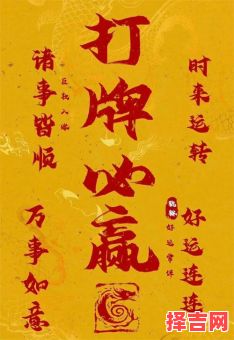 打牌必赢
诸事皆顺
万事如意
时来运转
好运连连
好运常伴
择吉网